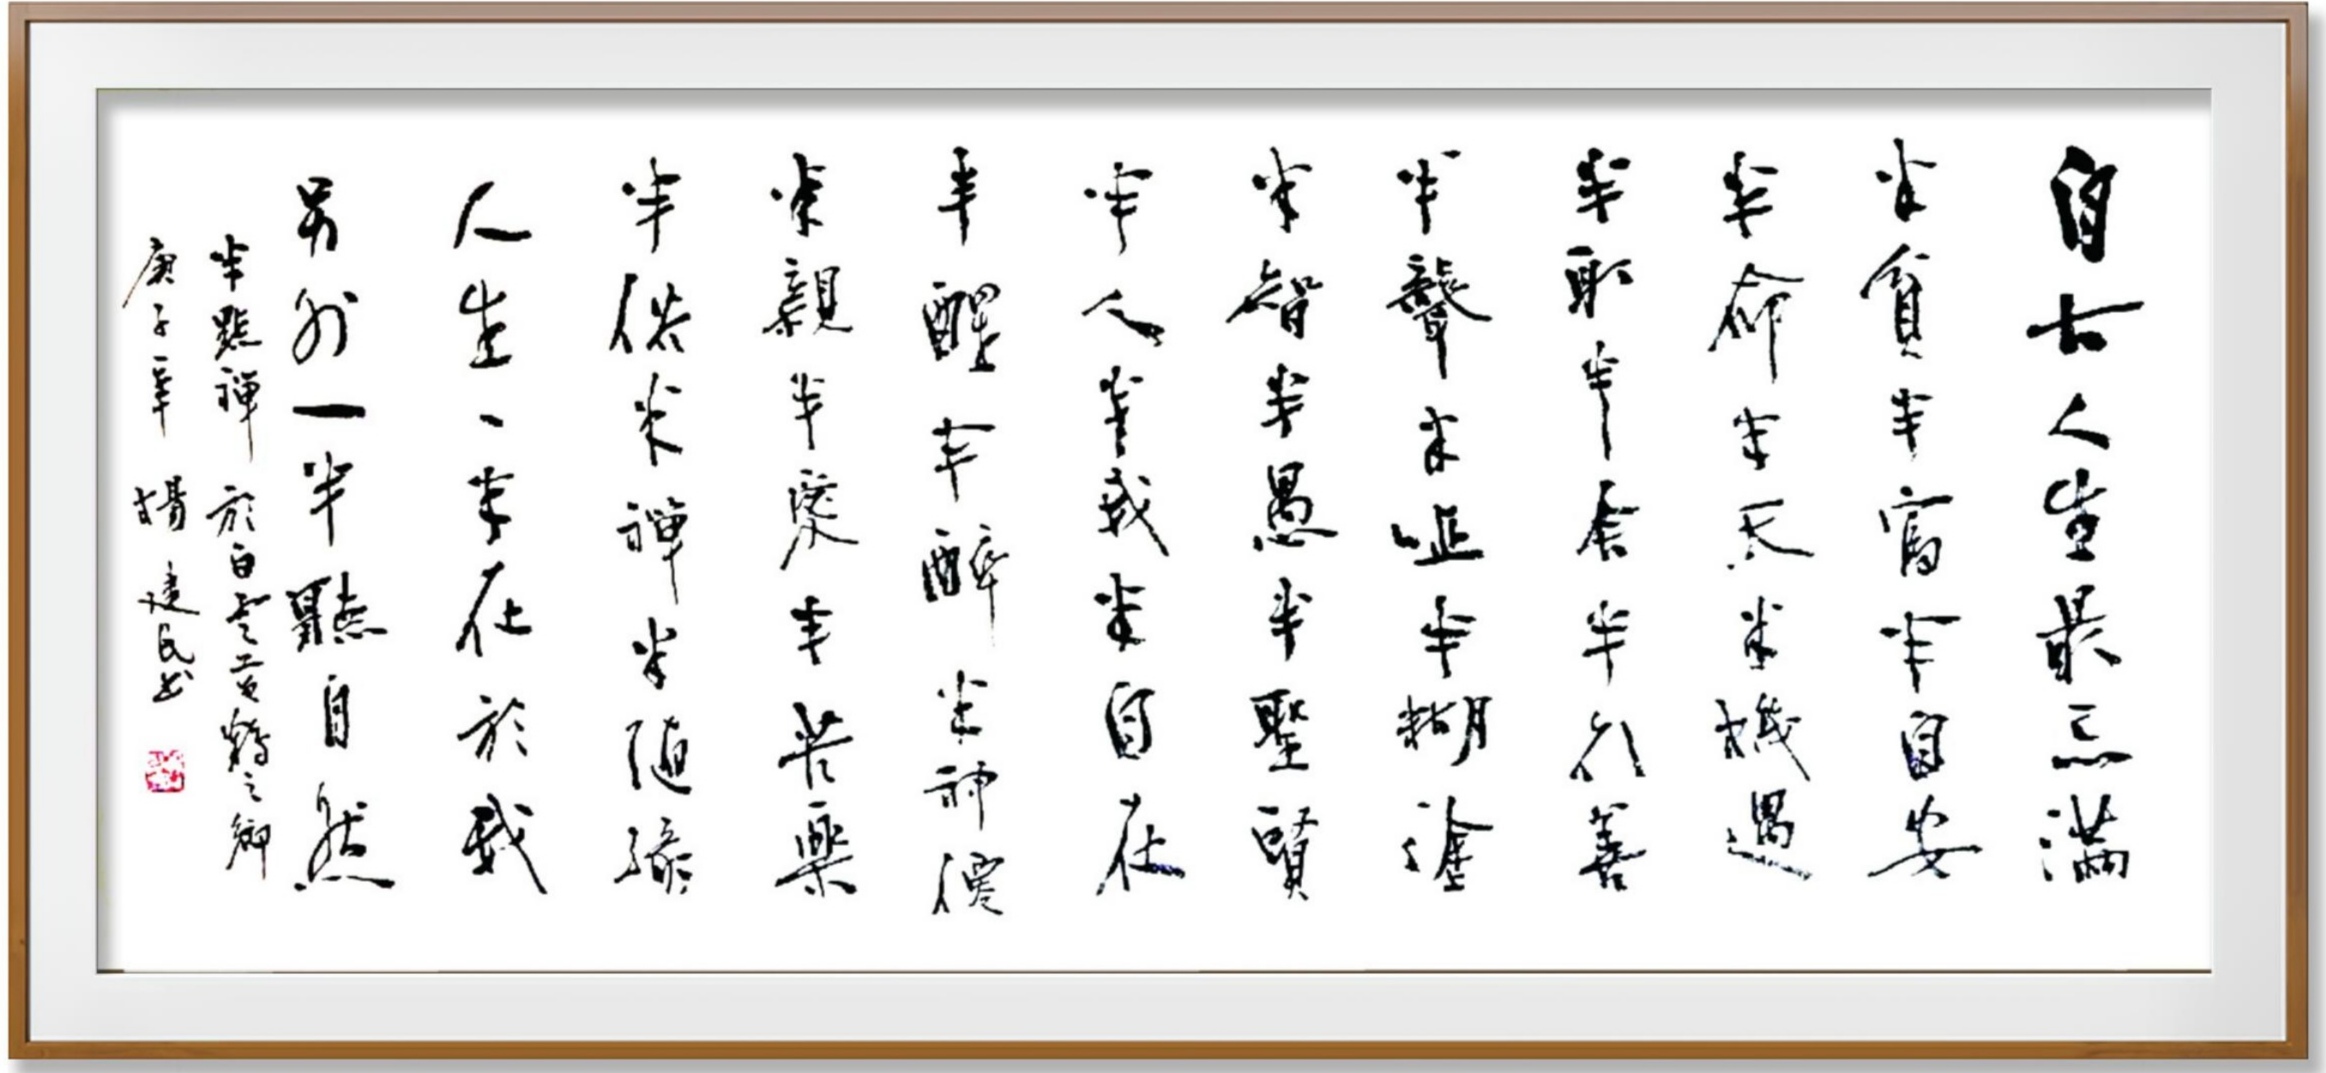 自古人生最忌滿
半貧半富半自安
半命半天半機遇
半取半舍半行善
半聾半啞半糊塗
半智半愚半聖賢
半人半我半自在
半醒半醉半神僊
半親半愛半苦樂
半俗半禪半隨緣
人生一半在於我
另外一半聽自然
半點禪 於白雲黃鶴之鄉
庚子年 楊建民书